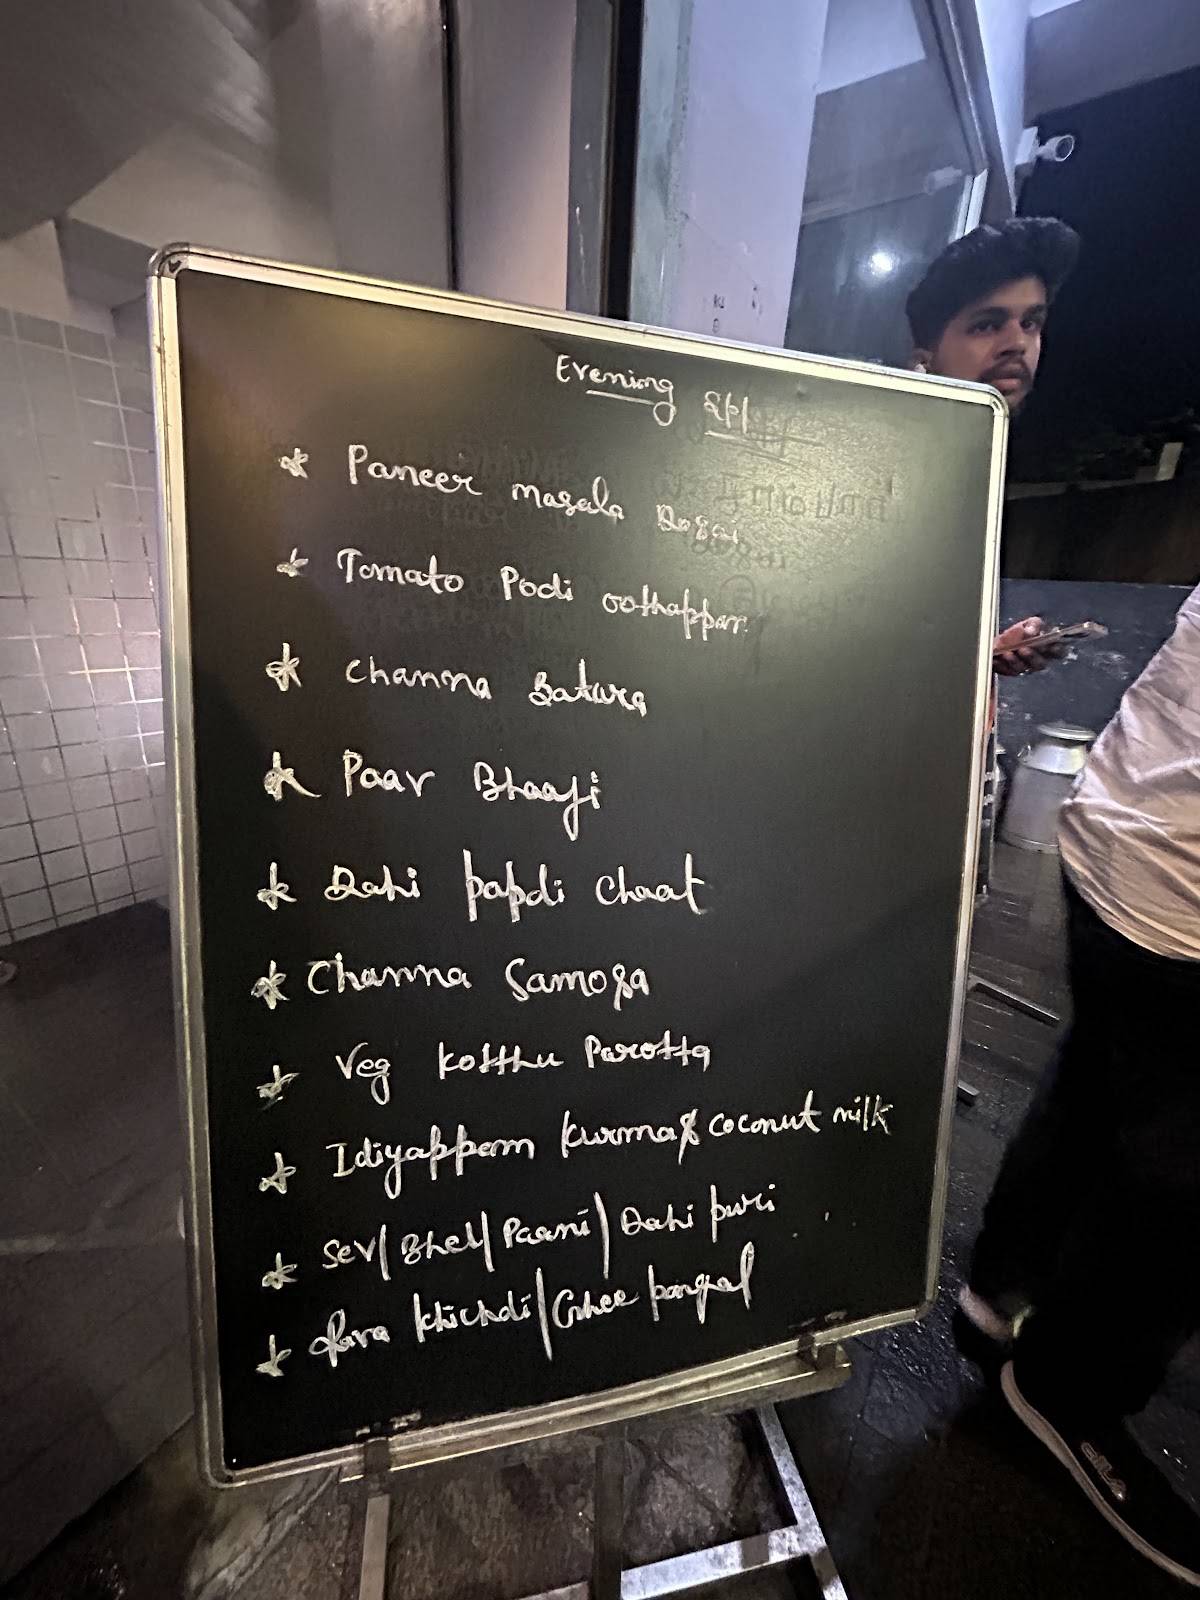 Evening Spl
* Paneer masala Dosai
* Tomato Podi oothappam
* Channa Batura
* Paav Bhaaji
* Dahi papdi chaat
* Channa Samosa
* Veg Kotthu Parotta
* Idiyappam kurma & coconut milk
* Sev/Bhel/Paani/Dahi puri
* Rava khichdi/Ghee pongal